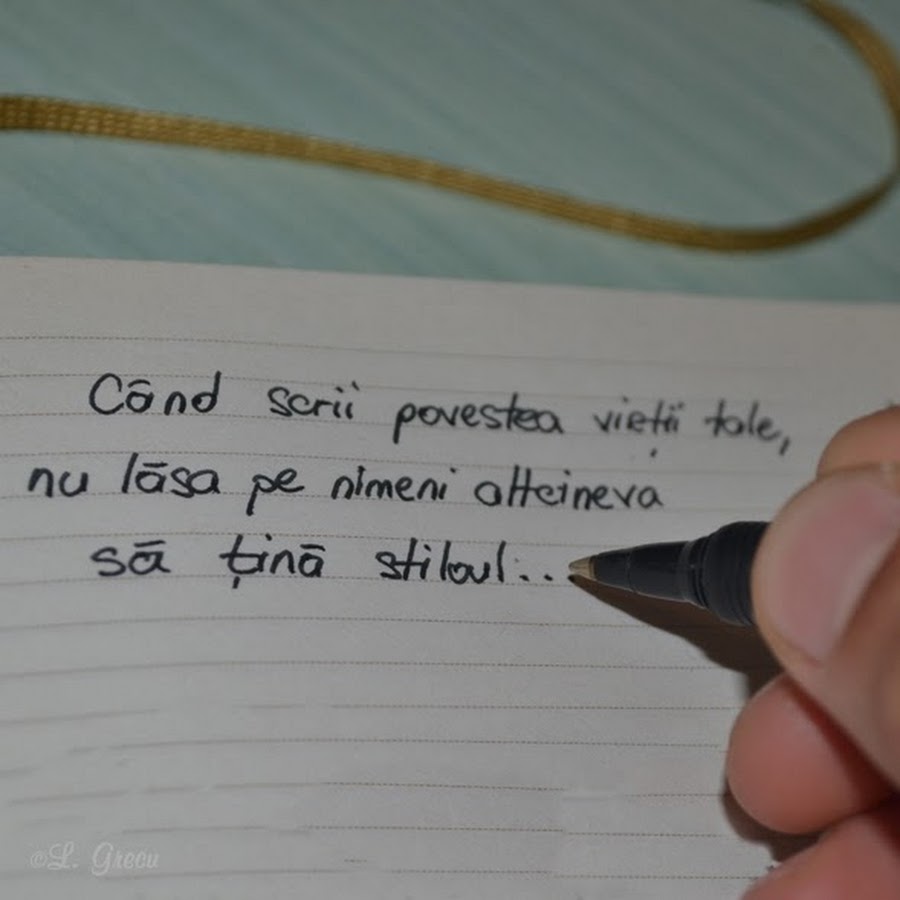 Când scrii povestea vieții tale,
nu lăsa pe nimeni altcineva
să țină stiloul...
©L. Grecu